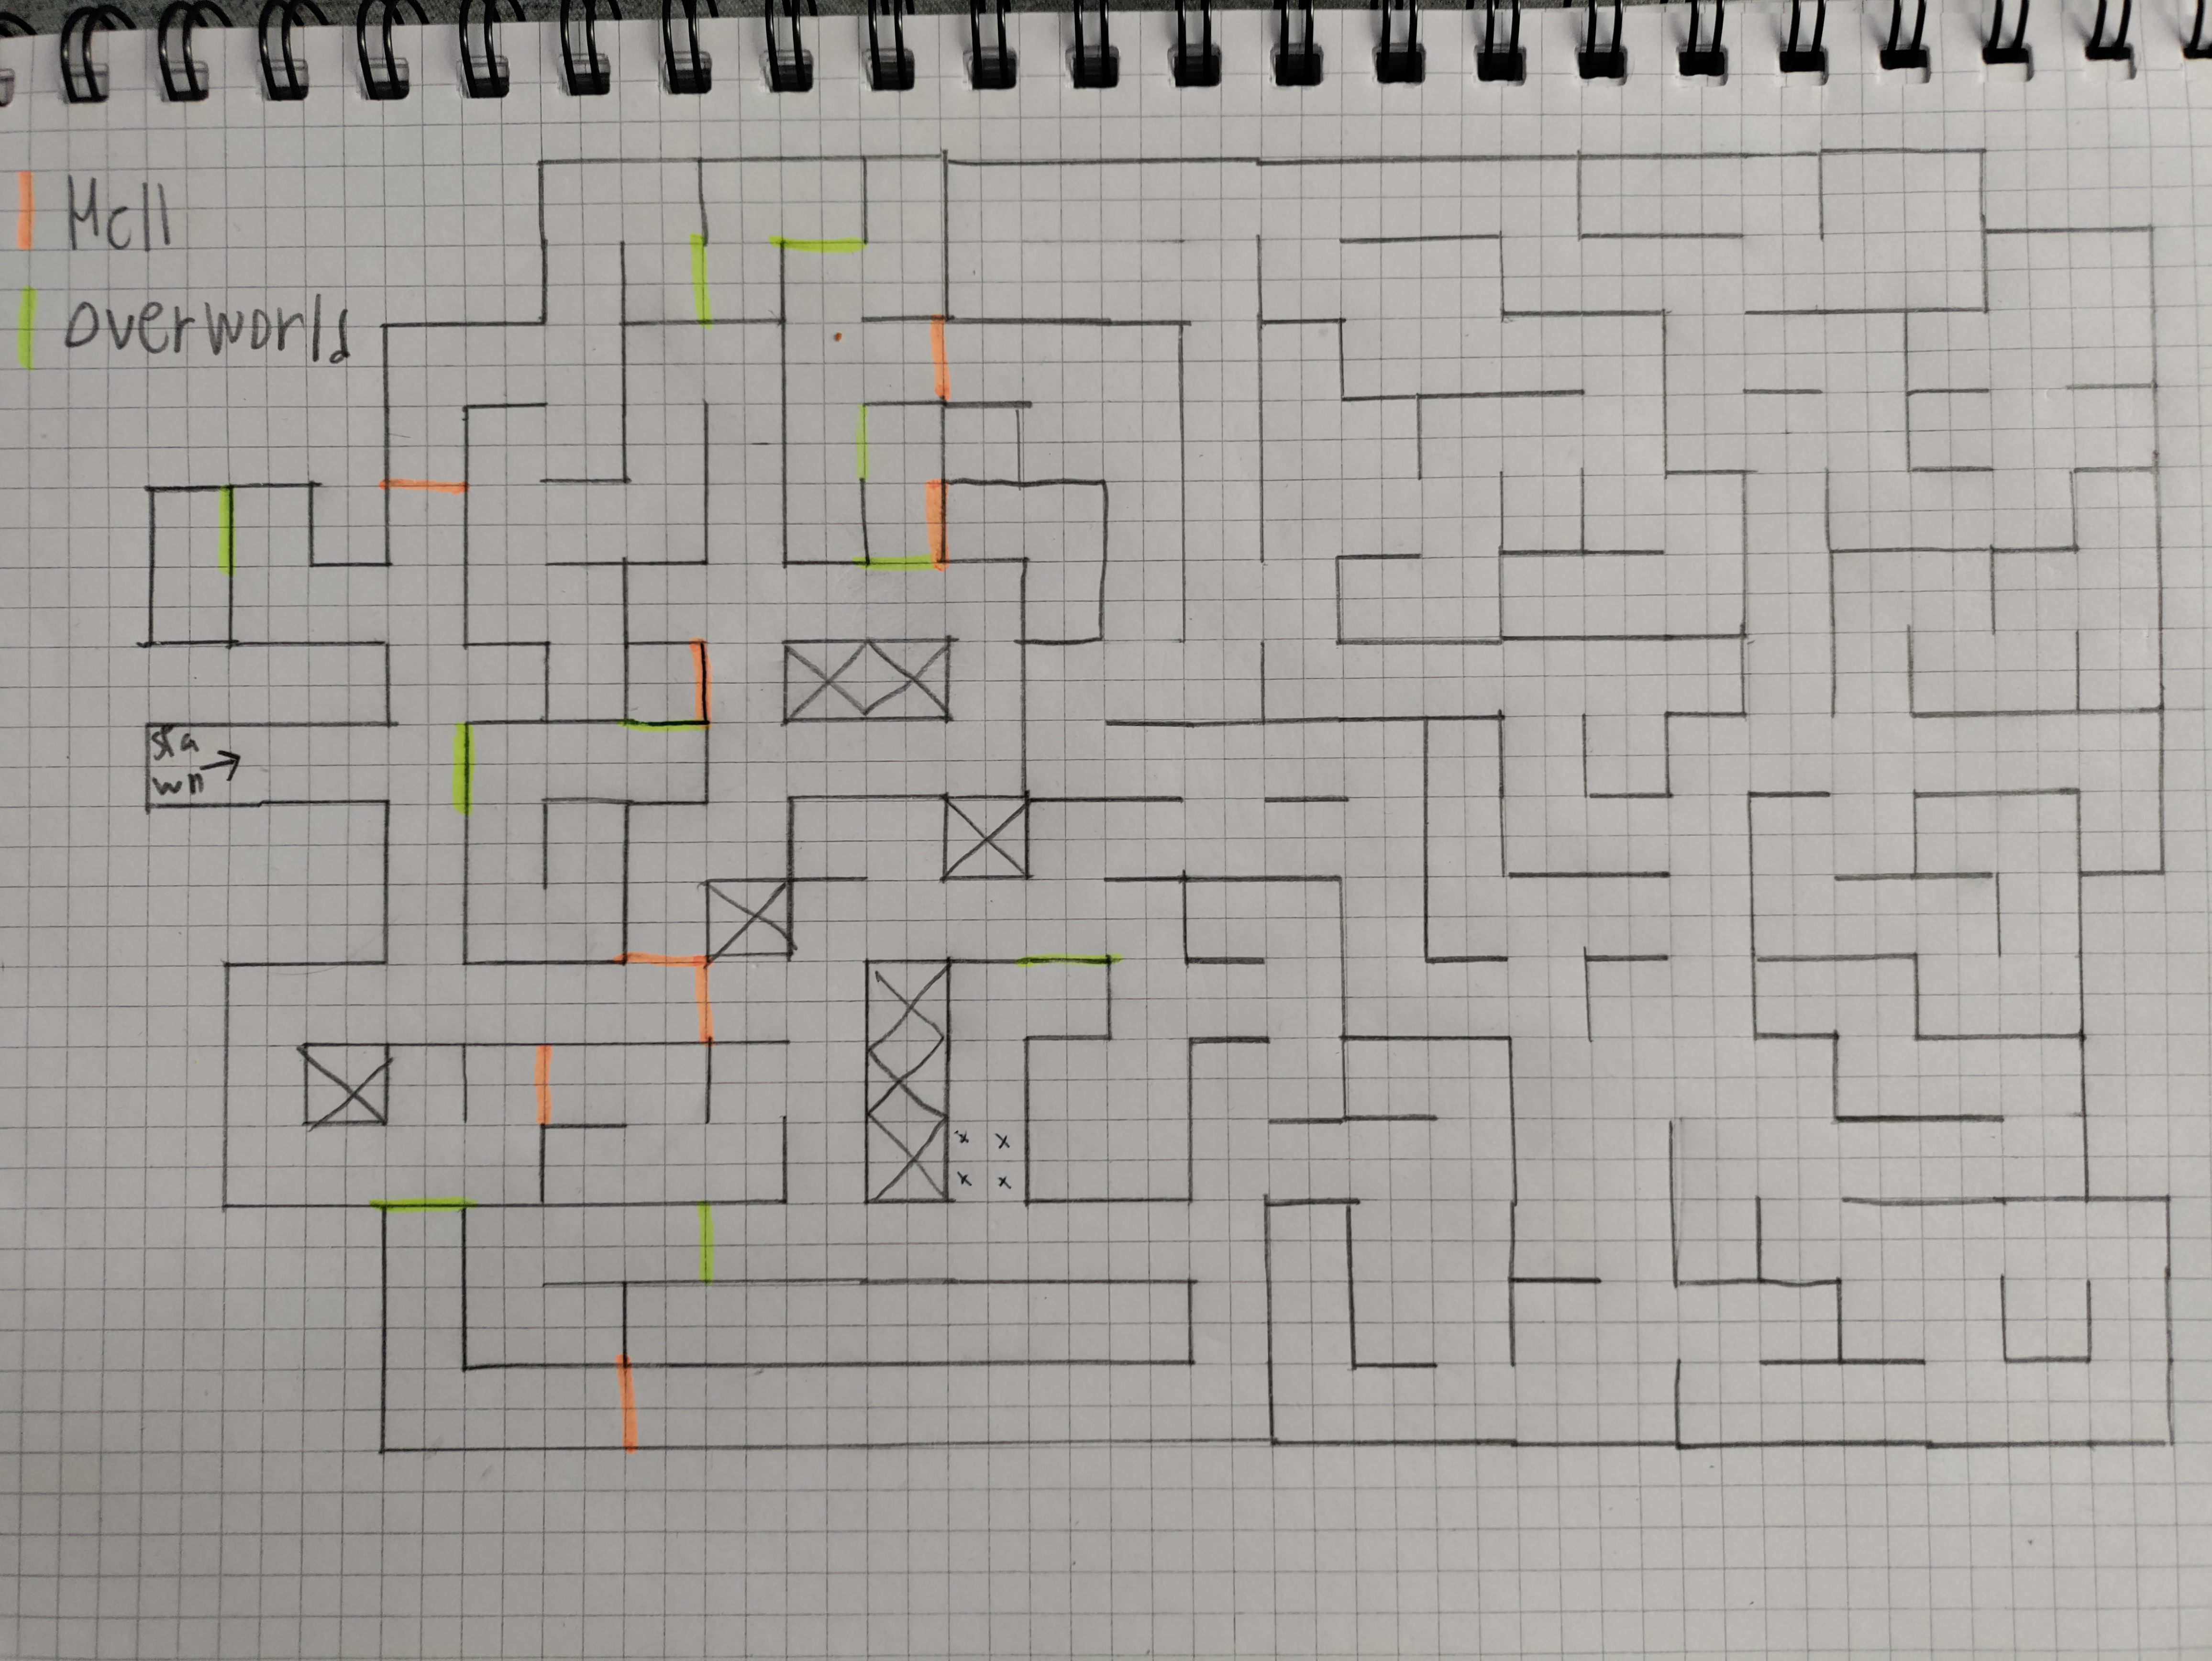 Hell
overworld
sta
wn →
x x
x x